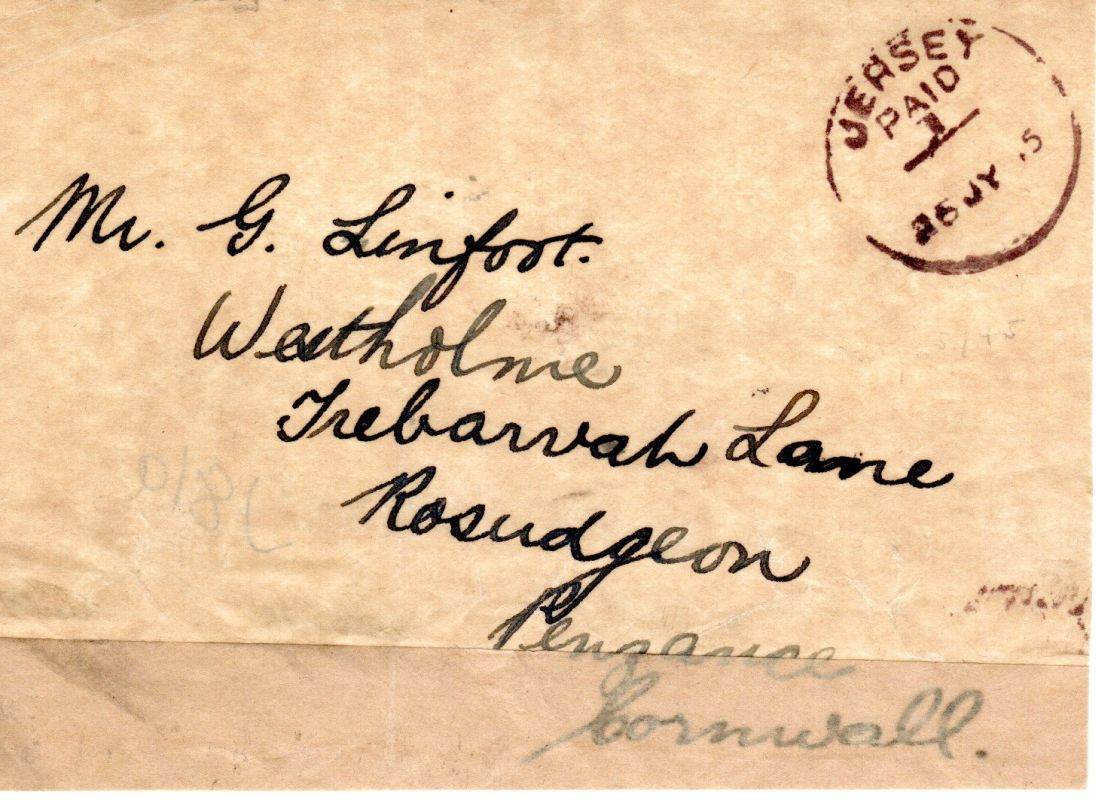 JERSEY
PAID
1
26 JY 5
Mr. G. Linfoot.
Westholme
Trebarvah Lane
Rosudgeon
Penzance
Cornwall.